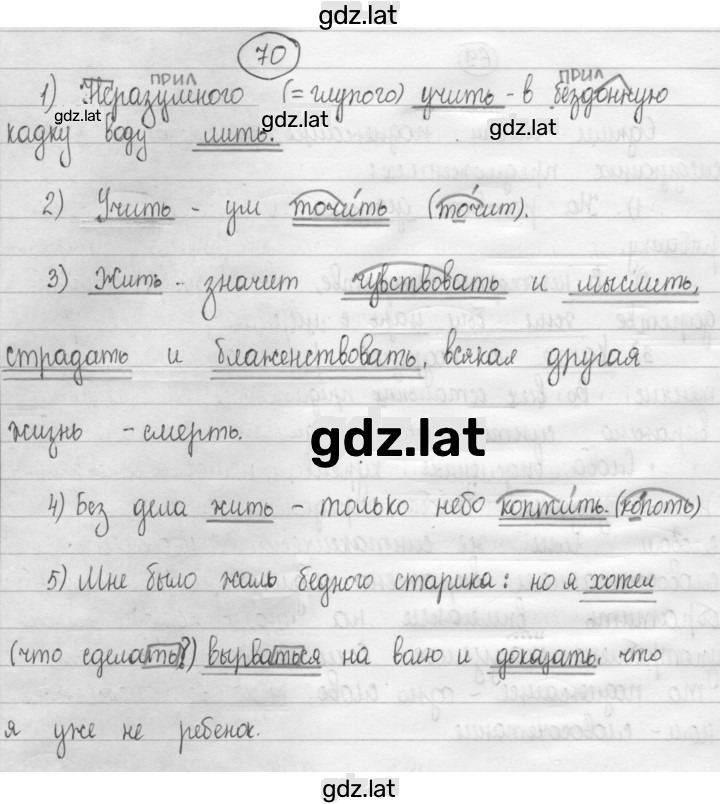 gdz.lat
70
прил прил
1) Неразумного (= глупого) учить - в бездонную
gdz.lat gdz.lat
кадку воду лить.
2) Учить - ум точить (точит).
3) Жить - значит чувствовать и мыслить,
страдать и блаженствовать, всякая другая
жизнь - смерть.
gdz.lat
4) Без дела жить - только небо коптить. (копоть)
5) Мне было жаль бедного старика: но я хотел
(что сделать?) вырваться на волю и доказать, что
я уже не ребенок.
gdz.lat